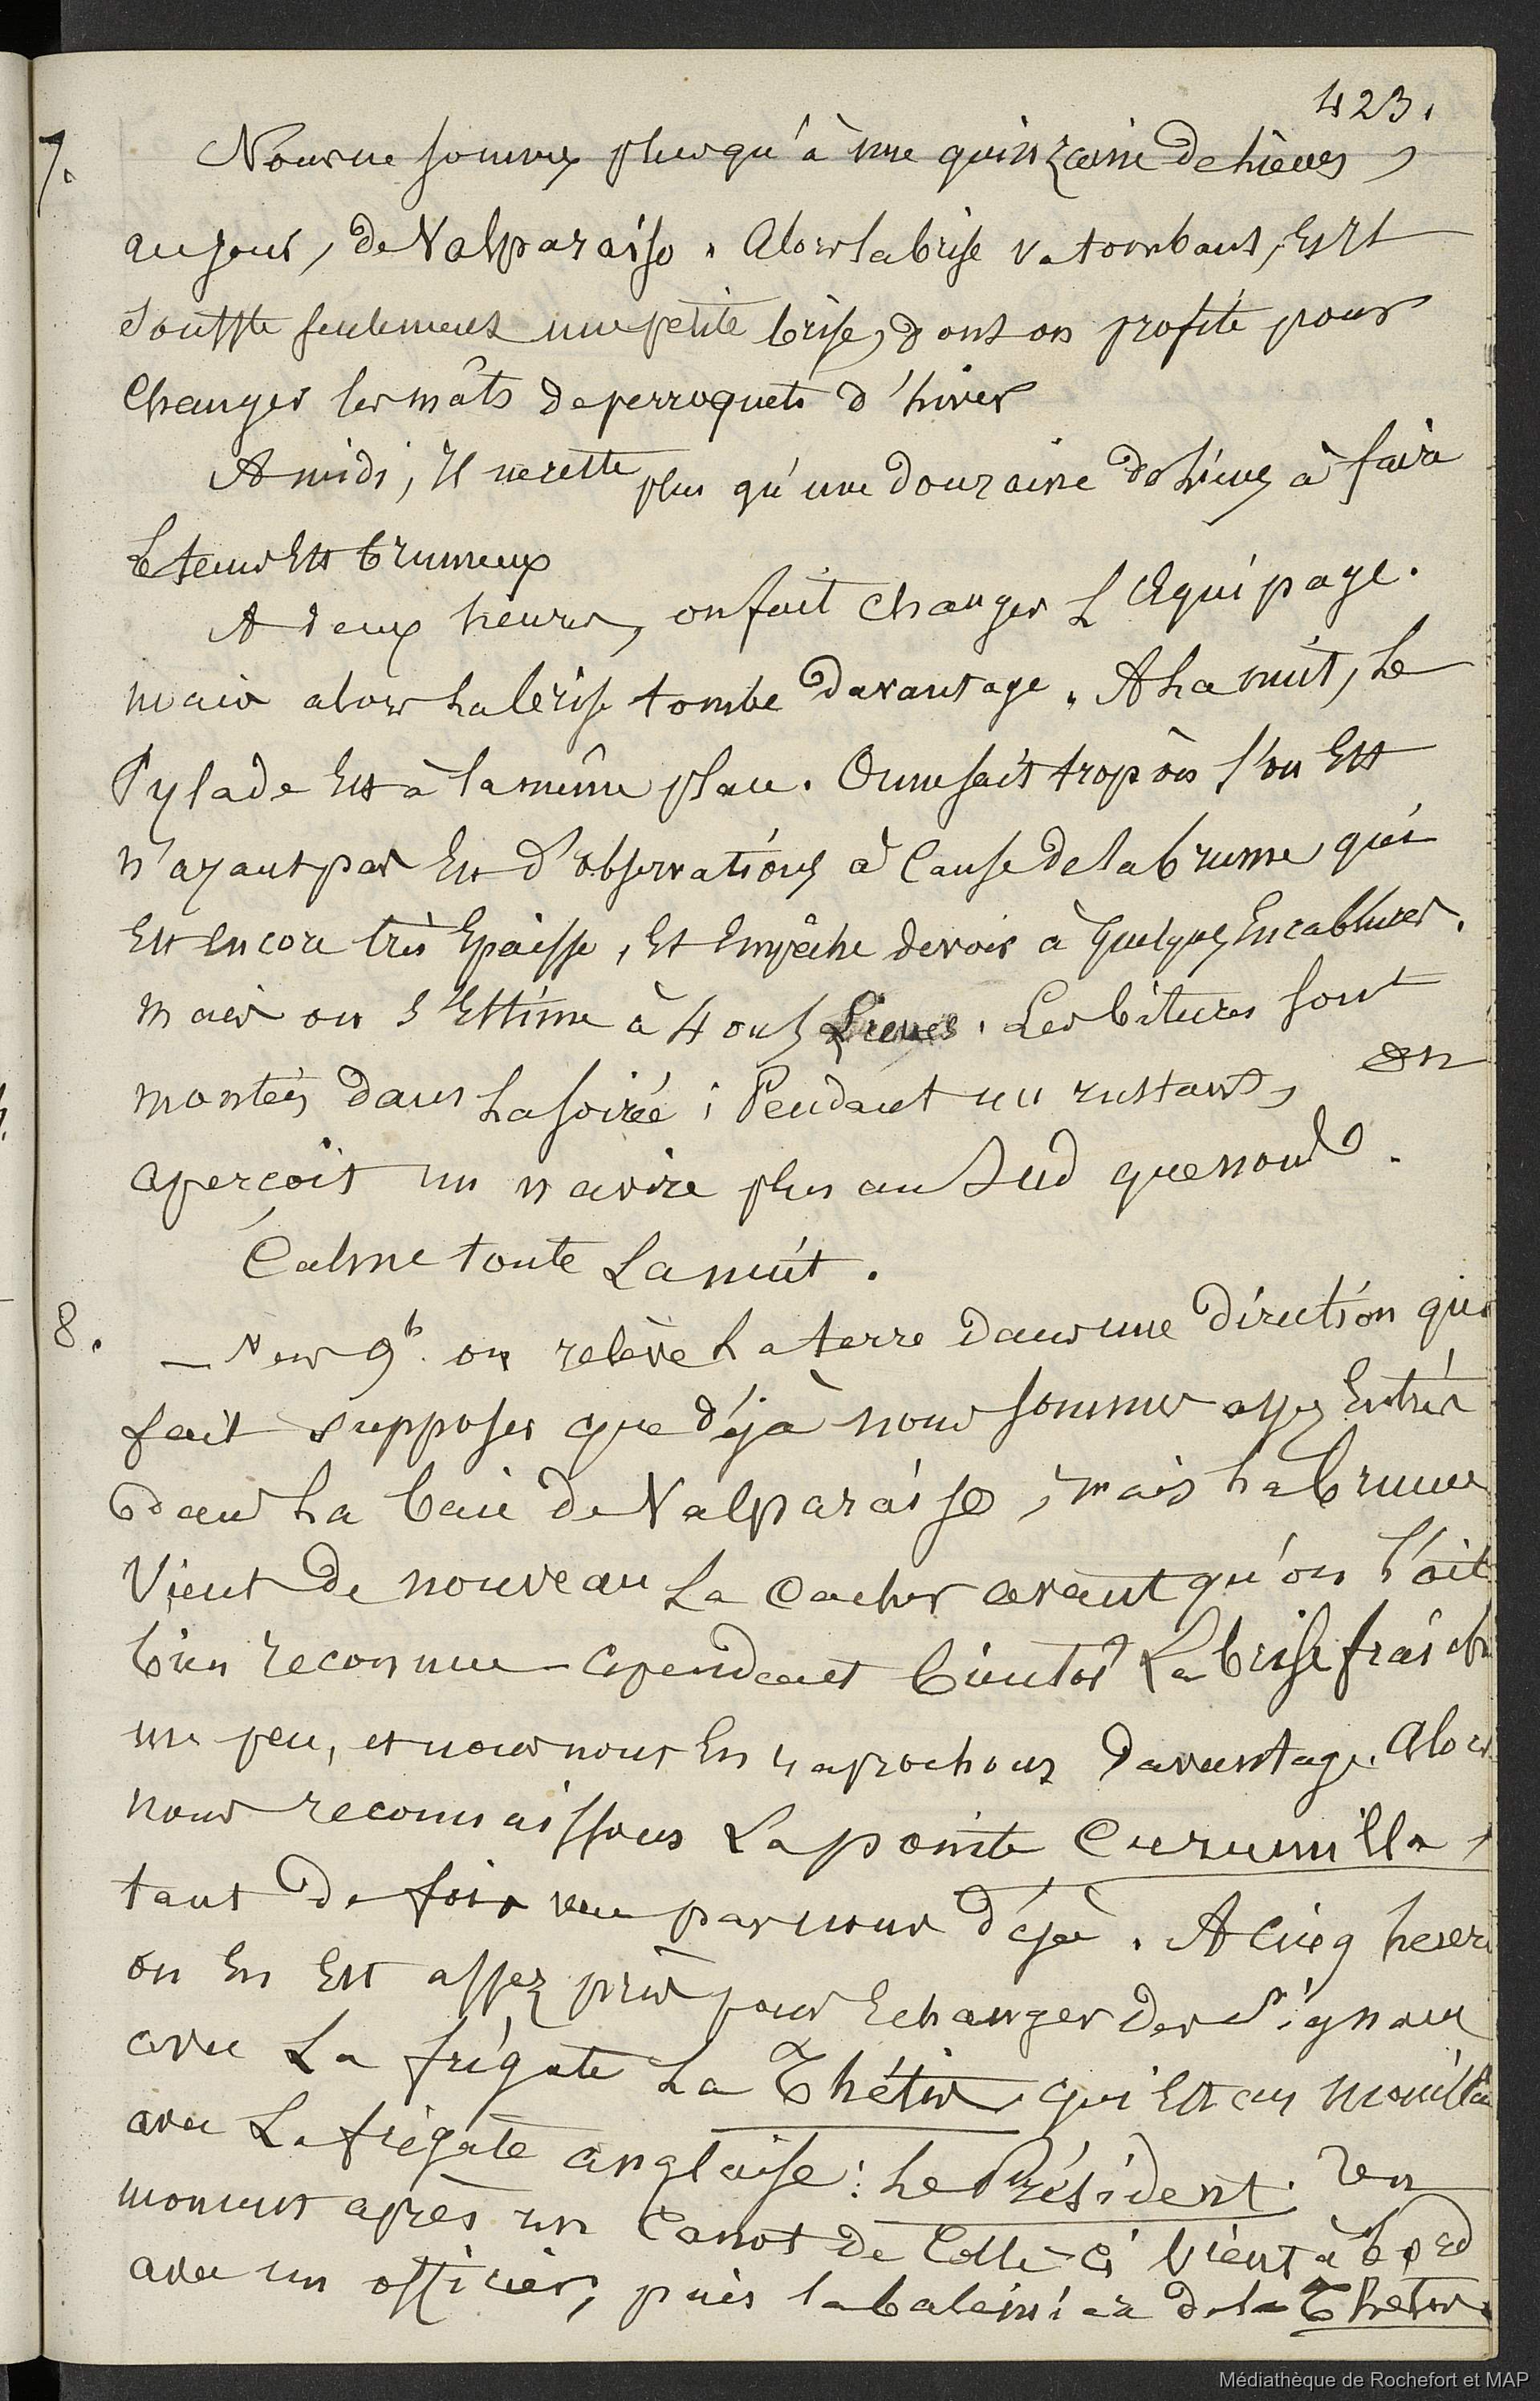 423.
7. Nous ne sommes plus qu'à une quinzaine de lieues,
au jour, de Valparaiso. Alors la brise va tombant, Est
souffle seulement une petite brise, dont on profite pour
changer les mâts de perroquets d'hiver
A midi, Il ne reste plus qu'une douzaine de lieues à faire
Le tems Est brumeux
A deux heures, on fait changer L'Equipage.
mais alors la brise tombe davantage. A la nuit, le
Pylade Est à la même place. On ne sait trop où l'on Est
n'ayant pas Eu d'observations à Cause de la brume qui
Est encore très Epaisse, Et Empêche de voir à quelques Encablures.
mais on s'Estime à 4 ou 5 Lieues. Les bitures sont
montées dans la soirée ; Pendant un instant, on
aperçoit un navire plus au Sud que nous.
Calme toute La nuit.
8. — Vers 9h. on relève La terre dans une direction qui
fait supposer que déjà nous sommes assez Entrés
dans La baie de Valparaiso, mais la brume
Vient de nouveau La cacher avant qu'on l'ait
bien reconnue - cependant bientôt La brise fraichi
un peu, et nous nous En raprochons Davantage. Alors
nous reconnaissons La pointe Curumilla,
tant de fois vue par nous déjà. A Cinq heur
on En Est assez près pour Echanger des Signaux
avec La frégate La Thétis qui Est au mouilla
avec La frégate anglaise : Le Président. Un
moment après un Canot de Celle-ci Vient à bord
avec un officier, puis la baleinière de la Thétis.
Médiathèque de Rochefort et MAP